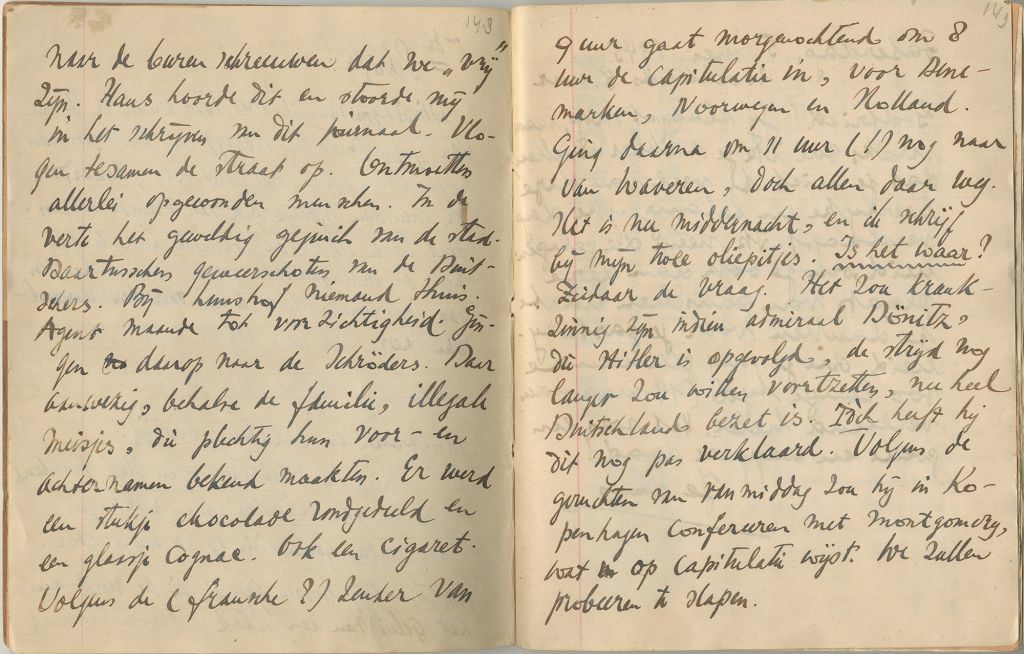 148
naar de buren schreeuwen dat we „vrij”
zijn. Hans hoorde dit en stoorde mij
in het schrijven van dit journaal. Vlo-
gen tezamen de straat op. Ontmoetten
allerlei opgewonden menschen. In de
verte het geweldig gejuich van de stad.
Daartusschen geweerschoten van de Duit-
schers. Bij niemand thuis.
Agent maande tot voorzichtigheid. Gin-
gen daarop naar de Schröders. Daar
aanwezig, behalve de familie, illegale
meisjes, die plechtig hun voor- en
achternamen bekend maakten. Er werd
een stukje chocolade rondgedeeld en
een glaasje cognac. Ook een cigaret.
Volgens de (fransche?) zender van
149
9 uur gaat morgenochtend om 8
uur de capitulatie in, voor Dene-
marken, Noorwegen en Holland.
Ging daarna om 11 uur (!) nog naar
van Waveren, doch allen daar weg.
Het is nu middernacht, en ik schrijf
bij mijn twee oliepitjes. Is het waar?
Ziedaar de vraag. Het zou krank-
zinnig zijn indien admiraal Dönitz,
die Hitler is opgevolgd, de strijd nog
langer zou willen voortzetten, nu heel
Duitschland bezet is. Tòch heeft hij
dit nog pas verklaard. Volgens de
geruchten van vanmiddag zou hij in Ko-
penhagen confereeren met Montgomery,
wat op capitulatie wijst. We zullen
probeeren te slapen.